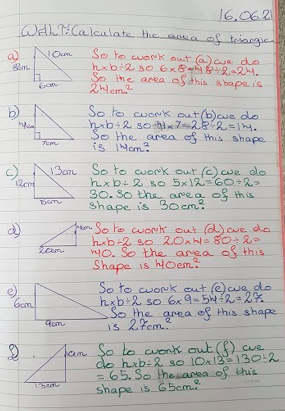 16.06.21
WALT: Calculate the area of triangles
a)
10cm
8cm
6cm
So to work out (a) we do
h×b÷2 so 6×8=48÷2=24.
So the area of this shape is
24cm²
b)
4cm
7cm
So to work out (b) we do
h×b÷2 so 4×7=28÷2=14.
So the area of this shape
is 14cm².
c)
13cm
12cm
5cm
So to work out (c) we do
h×b÷2 so 5×12=60÷2=
30. So the area of this
shape is 30cm².
d)
4cm
20cm
So to work out (d) we do
h×b÷2 so 20×4=80÷2=
40. So the area of this
Shape is 40cm².
e)
6cm
9cm
So to work out (e) we do
h×b÷2 so 6×9=54÷2=27.
So the area of this shape
is 27cm².
So to work out (f) we
do h×b÷2 so 10×13=130÷2
=65. So the area of this
shape is 65cm²